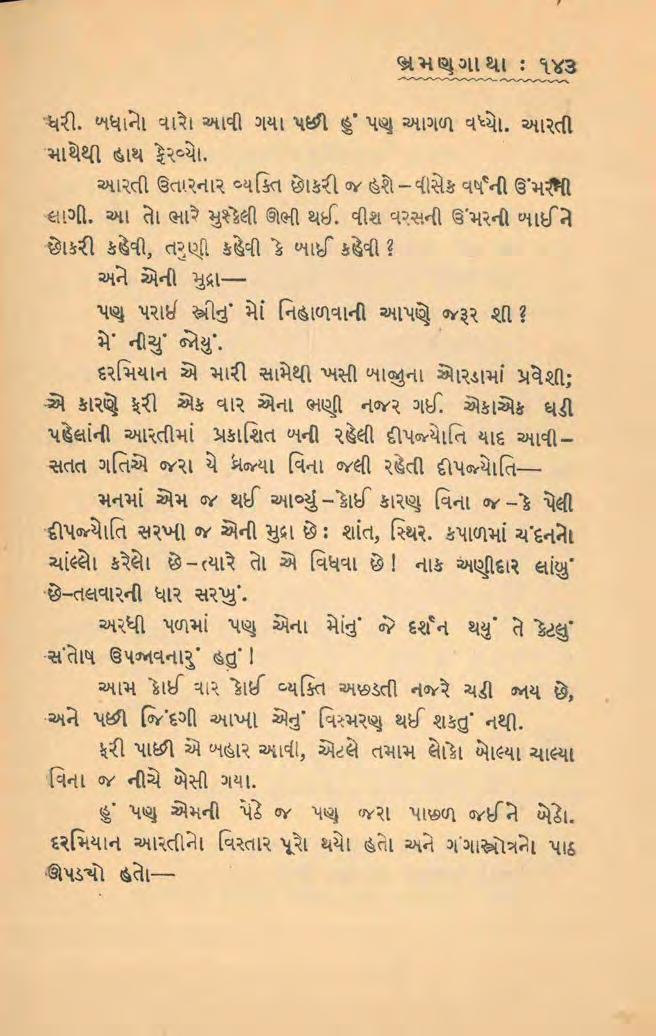 ભ્રમણગાથા : ૧૪૩
ધરી. બધાનો વારો આવી ગયા પછી હું પણ આગળ વધ્યો. આરતી
માથેથી હાથ ફેરવ્યો.
આરતી ઉતારનાર વ્યક્તિ છોકરી જ હશે – વીસેક વર્ષની ઉંમરની
લાગી. આ તો ભારે મુસ્કેલી ઊભી થઈ. વીશ વરસની ઉંમરની બાઈને
છોકરી કહેવી, તરુણી કહેવી કે બાઈ કહેવી ?
અને એની મુદ્રા—
પણ પરાઈ સ્ત્રીનું મોં નિહાળવાની આપણે જરૂર શી ?
મેં નીચું જોયું.
દરમિયાન એ મારી સામેથી ખસી બાજુના ઓરડામાં પ્રવેશી;
એ કારણે ફરી એક વાર એના ભણી નજર ગઈ. એકાએક ઘડી
પહેલાંની આરતીમાં પ્રકાશિત બની રહેલી દીપજ્યોતિ યાદ આવી–
સતત ગતિએ જરા યે ધ્રૂજ્યા વિના જલી રહેતી દીપજ્યોતિ—
મનમાં એમ જ થઈ આવ્યું – કોઈ કારણ વિના જ – કે પેલી
દીપજ્યોતિ સરખી જ એની મુદ્રા છે : શાંત, સ્થિર. કપાળમાં ચંદનનો
ચાંલ્લો કરેલો છે – ત્યારે તો એ વિધવા છે ! નાક અણીદાર લાંબું
છે–તલવારની ધાર સરખું.
અરધી પળમાં પણ એના મોંનું જે દર્શન થયું તે કેટલું
સંતોષ ઉપજાવનારું હતું !
આમ કોઈ વાર કોઈ વ્યક્તિ અછડતી નજરે ચડી જાય છે,
અને પછી જિંદગી આખા એનું વિસ્મરણ થઈ શકતું નથી.
ફરી પાછી એ બહાર આવી, એટલે તમામ લોકો બોલ્યા ચાલ્યા
વિના જ નીચે બેસી ગયા.
હું પણ એમની પેઠે જ પણ જરા પાછળ જઈને બેઠો.
દરમિયાન આરતીનો વિસ્તાર પૂરો થયો હતો અને ગંગાસ્ત્રોત્રનો પાઠ
ઊપડ્યો હતો—